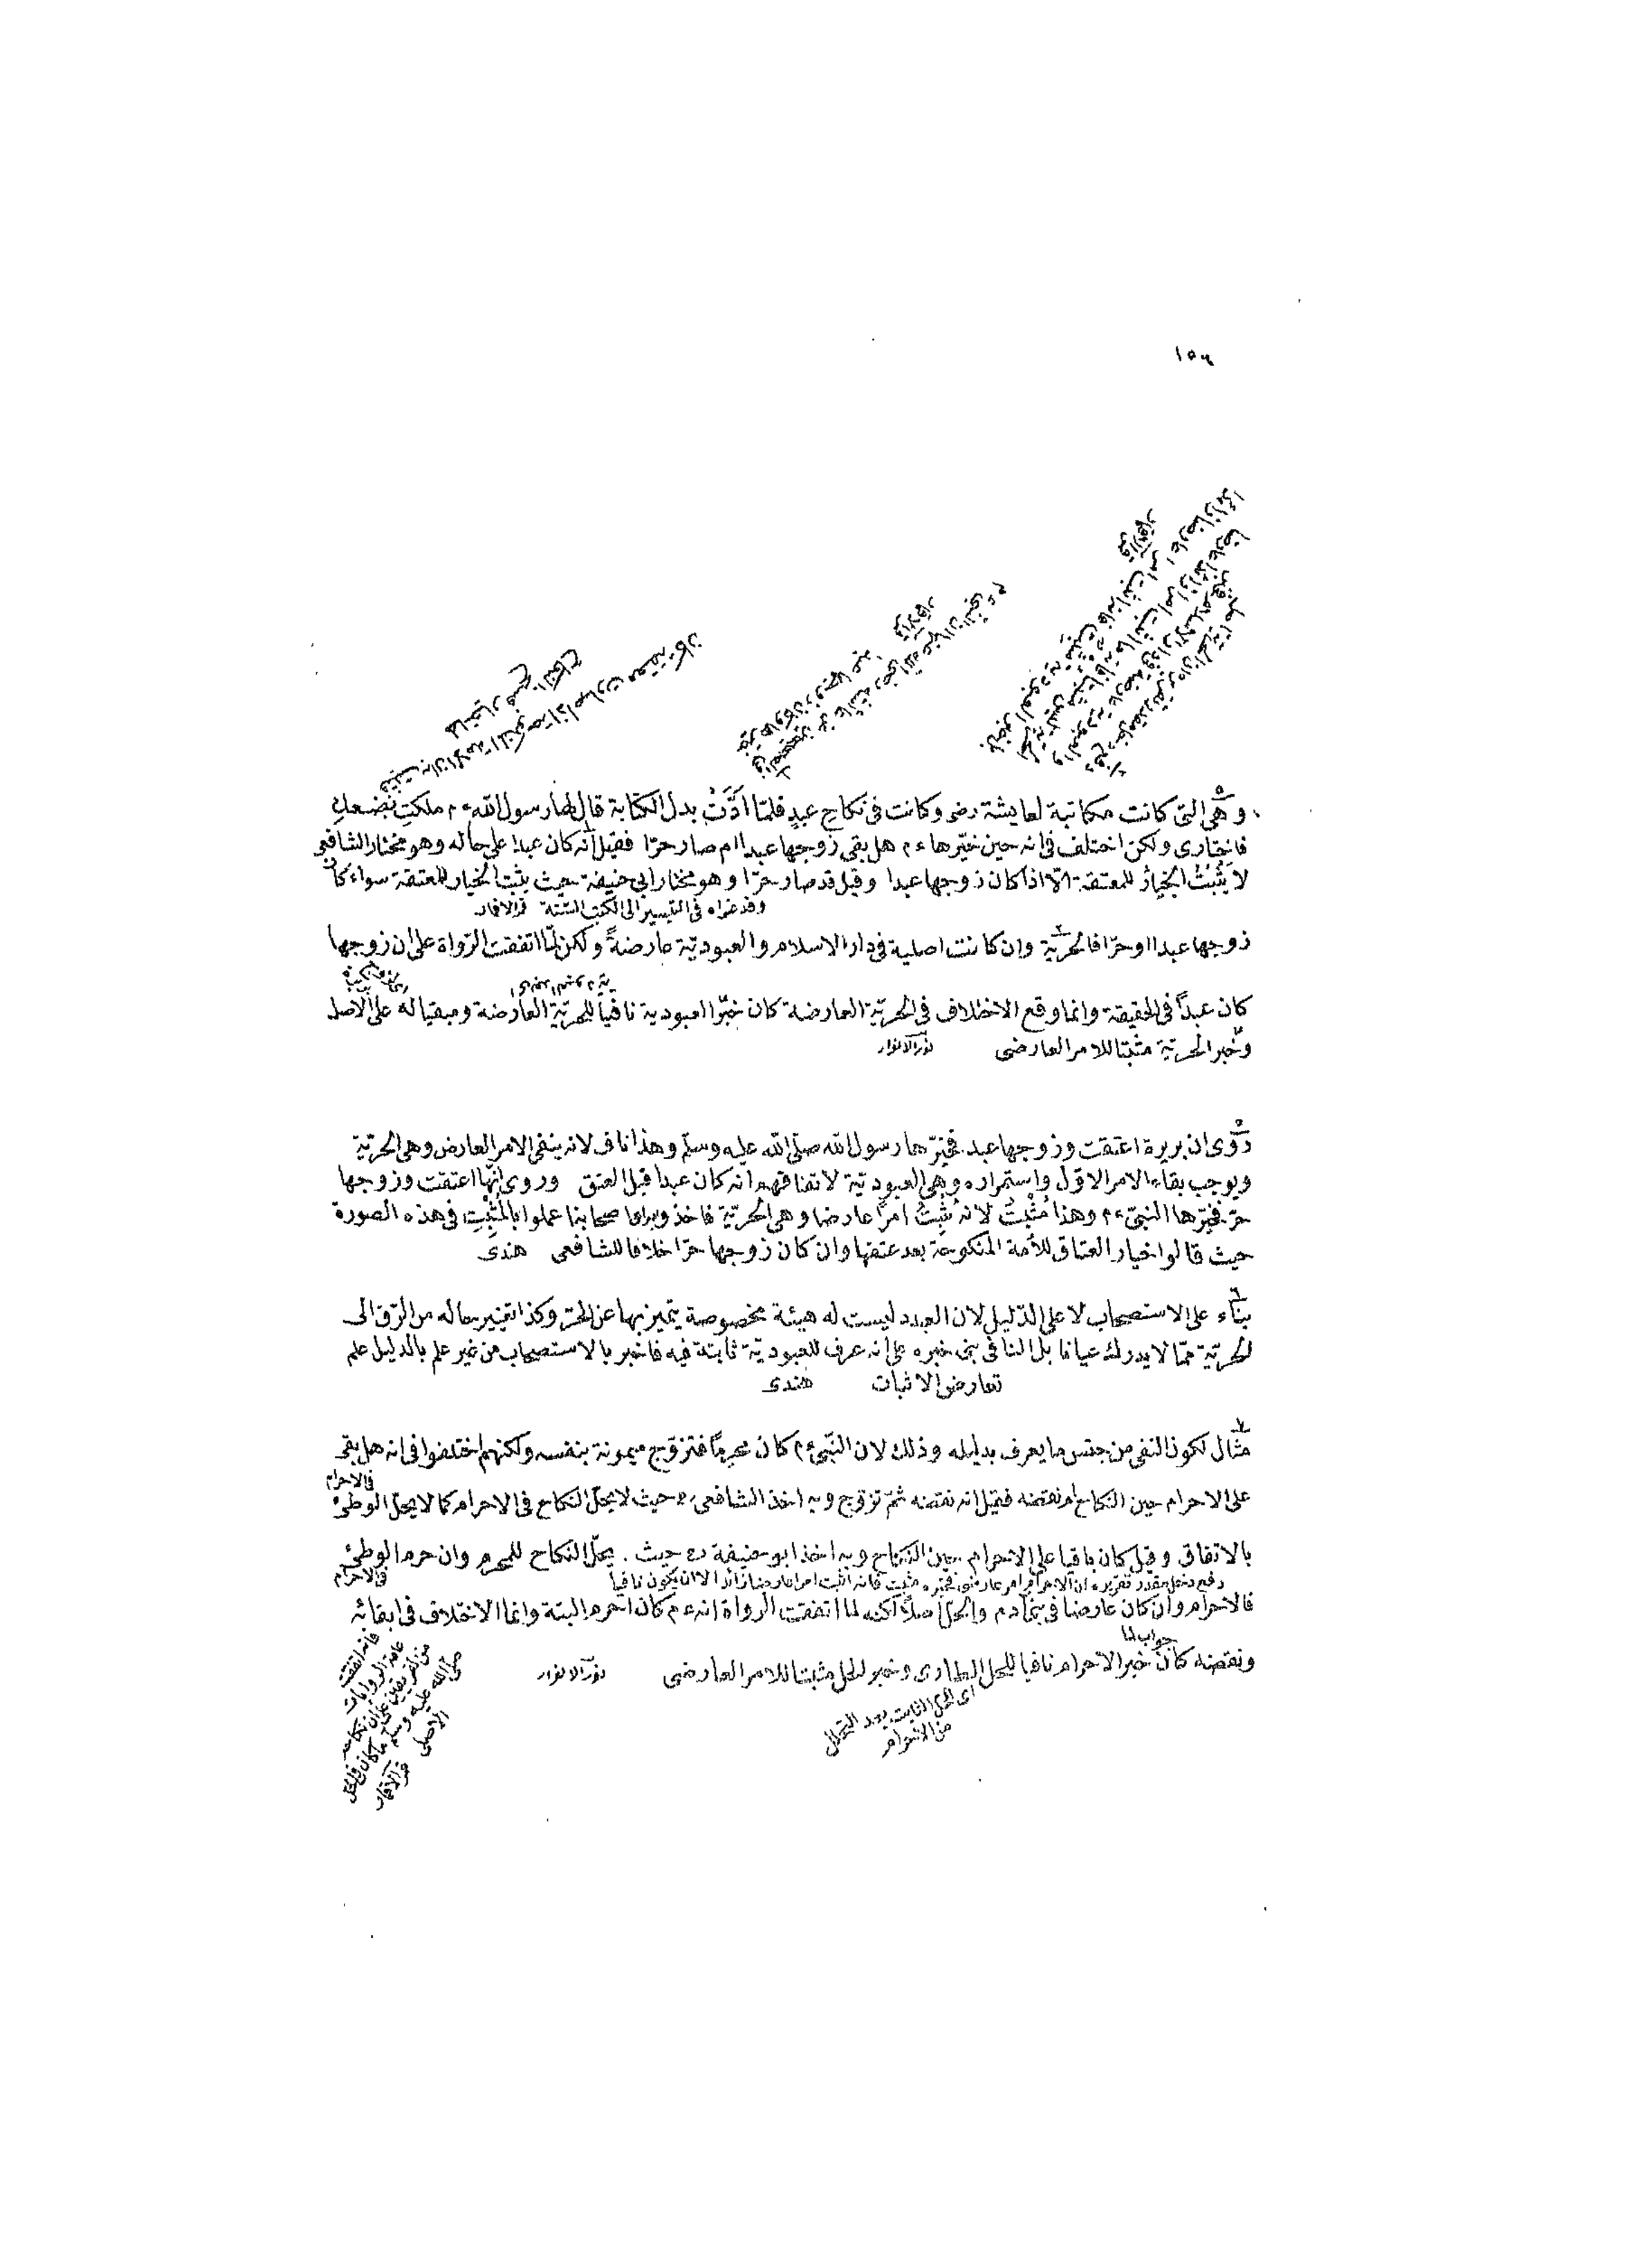 ١٥٩
وهى التى كانت مكاتبة لعايشة رضى وكانت فى نكاح عبدٍ فلمّا ادَّتْ بدل الكتابة قال لها رسول الله ءم ملكتِ بُضعكِ
فاختارى ولكن اختلف فى انه حين خيّرها ءم هل بقى زوجها عبدا ام صار حرّا فقيل انّه كان عبدا على حاله وهو مختار الشافعى
لا يَثْبُتُ الخيارُ للمعتقة الّا اذا كان زوجها عبدا وقيل قد صار حرّا وهو مختار ابى حنيفة حيث يثبت الخيار للمعتقة سواء كان
وقد عزاه فى التيسير الى الكتب الستّة قمر الاقمار
زوجها عبدا او حرّا فالحرّية وان كانت اصلية فى دار الاسلام والعبوديّة عارضةً ولكن لمّا اتفقت الرّواة على ان زوجها
كان عبداً فى الحقيقة وانما وقع الاختلاف فى الحريّة العارضة كان خبرُ العبودية نافياً للحريّة العارضة ومبقيا له على الاصل
وخبر الحريّة مثبتا للامر العارضى نور الانوار
رُوى ان بريرة اعتقت وزوجها عبد فخيّرها رسول الله صلّى الله عليه وسلّم وهذا ناف لانه ينفى الامر العارض وهى الحرّيّة
ويوجب بقاء الامر الاوّل واستمراره وهى العبوديّة لاتفاقهم انه كان عبدا قبل العتق وروى انّها اعتقت وزوجها
حرّ فخيّرها النبىّ ءم وهذا مُثْبِتٌ لانه يُثْبِتُ امراً عارضا وهى الحرّيّة فاخذ وبها اصحابنا عملوا بالمُثْبِتِ فى هذه الصورة
حيث قالوا خيار العتاق للأمة المنكوحة بعد عتقها وان كان زوجها حرّا خلافا للشافعى هندى
بناء على الاستصحاب لا على الدّليل لان العبد ليست له هيئة مخصوصة يتميز بها عن الحرّ وكذا تغيير حاله من الرّق الى
الحرّيّة ممّا لا يدرك عيانا بل النافى بنى خبره على انه عرف العبوديّة ثابتة فيه فاخبر بالاستصحاب من غير علم بالدليل علم
تعارض الاثبات هندى
مثال لكون النفى من جنس ما يعرف بدليله وذلك لان النّبىّ ءم كان محرِماً فتزوّج ميمونة بنفسه ولكنهم اختلفوا فى انه هل بقى
فى الاحرام
على الاحرام حين النكاح ام نقضه فقيل انه نقضه ثمّ تزوّج وبه اخذ الشافعى رح حيث لا يحلّ النكاح فى الاحرام كما لا يحلّ الوطئ
بالاتفاق وقيل كان باقيا على الاحرام حين النكاح وبه اخذ ابو حنيفة رح حيث يحلّ النكاح للمحرم وان حرم الوطئ
فى الاحرام
دفع دخل مقدر تقريره ان الاحرام امر عارضى فخبره مثبت فانه اثبت امرا عارضا زائدا الا ان يكون نافيا
فالاحرام وان كان عارضا فى بنى آدم والحلّ اصلاً لكنه لما اتفقت الرواة انه ءم كان احرم البتة وانما الاختلاف فى ابقائه
جواب لما
ونقضه كان خبر الاحرام نافيا للحل الطارى وخبر الحل مثبتا للامر العارضى نور الانوار
اى الحل الثابت بعد التحلّل
من الاحرام
فانه اتفقت
عامة الروايات
من الفريقين على ان نكاحه
صلى الله عليه وسلم ما كان فى الحل
الاصلى قمر الاقمار